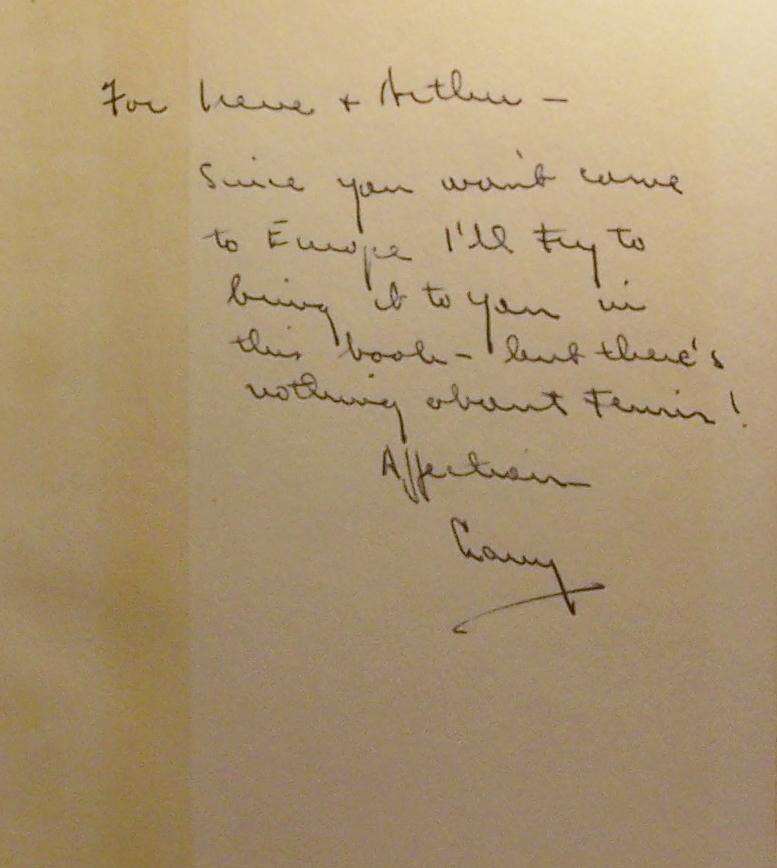 For Irene + Arthur –
Since you won't come
to Europe I'll try to
bring it to you in
this book – but there's
nothing about Tennis!
Affection